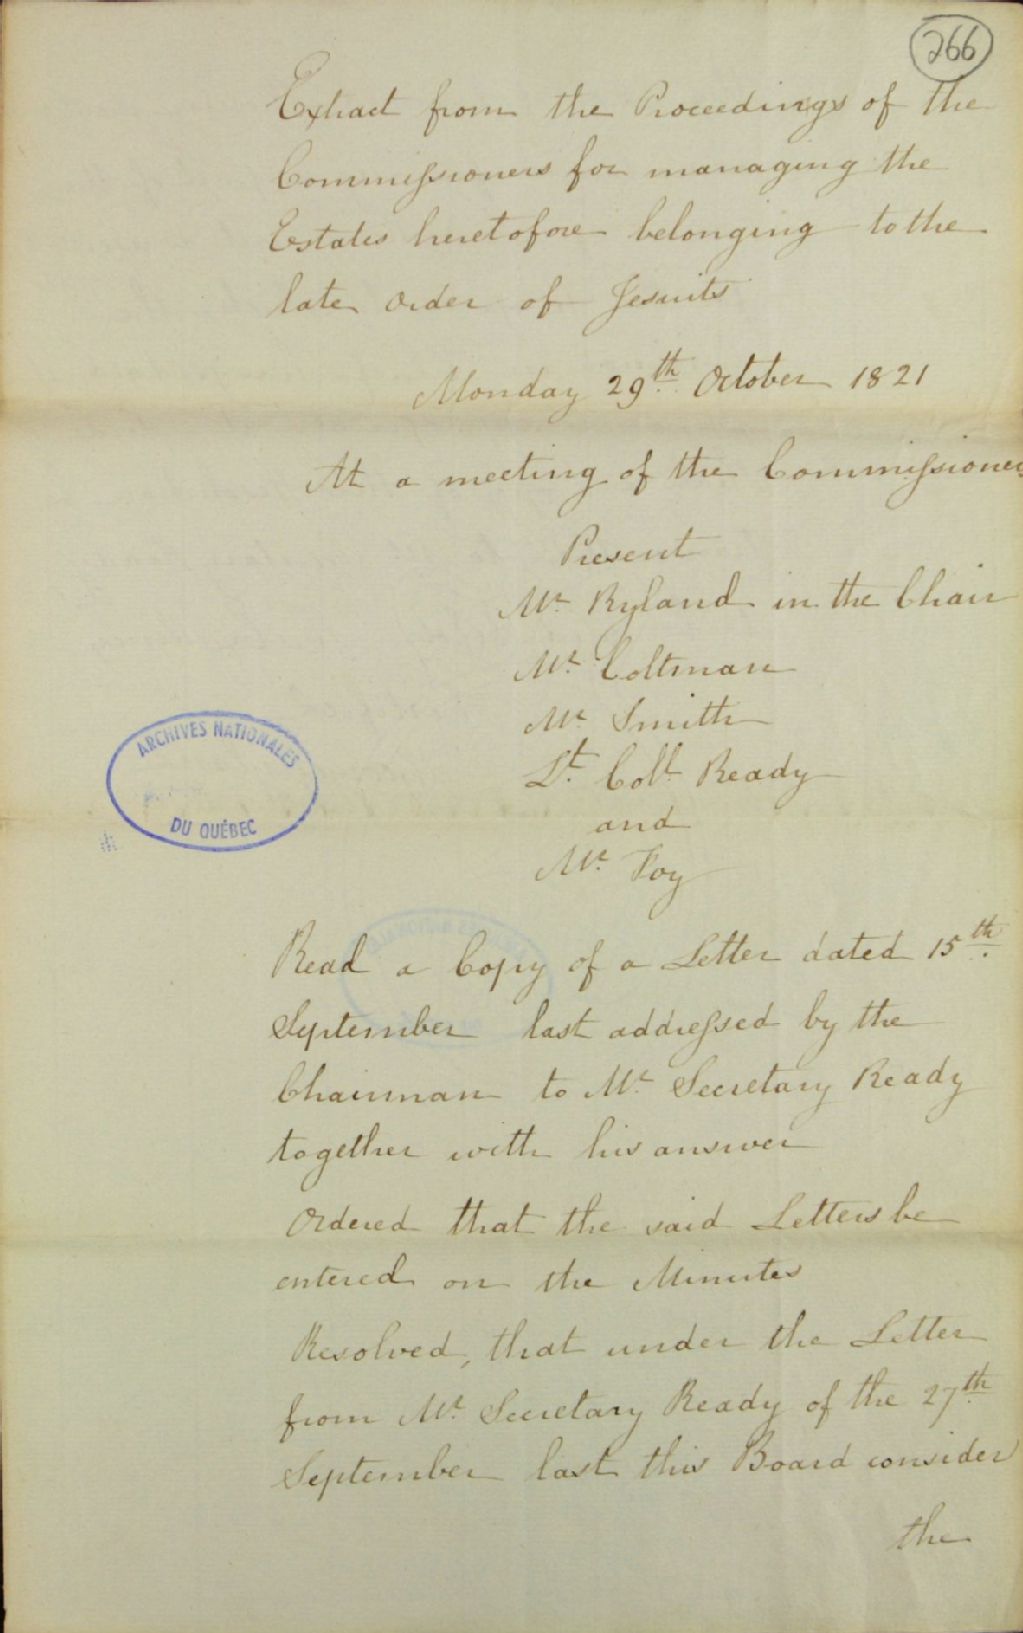 266
Extract from the Proceedings of the
Commissioners for managing the
Estates heretofore belonging to the
late Order of Jesuits
Monday 29th October 1821
At a meeting of the Commissioners
Present
Mr Ryland in the Chair
Mr Coltman
Mr Smith
Lt Coll Ready
and
Mr Foy
ARCHIVES NATIONALES
DU QUÉBEC
Read a Copy of a Letter dated 15th
September last addressed by the
Chairman to Mr Secretary Ready
together with his answer
Ordered that the said Letters be
entered on the Minutes
Resolved, that under the Letter
from Mr Secretary Ready of the 27th
September last this Board consider
the